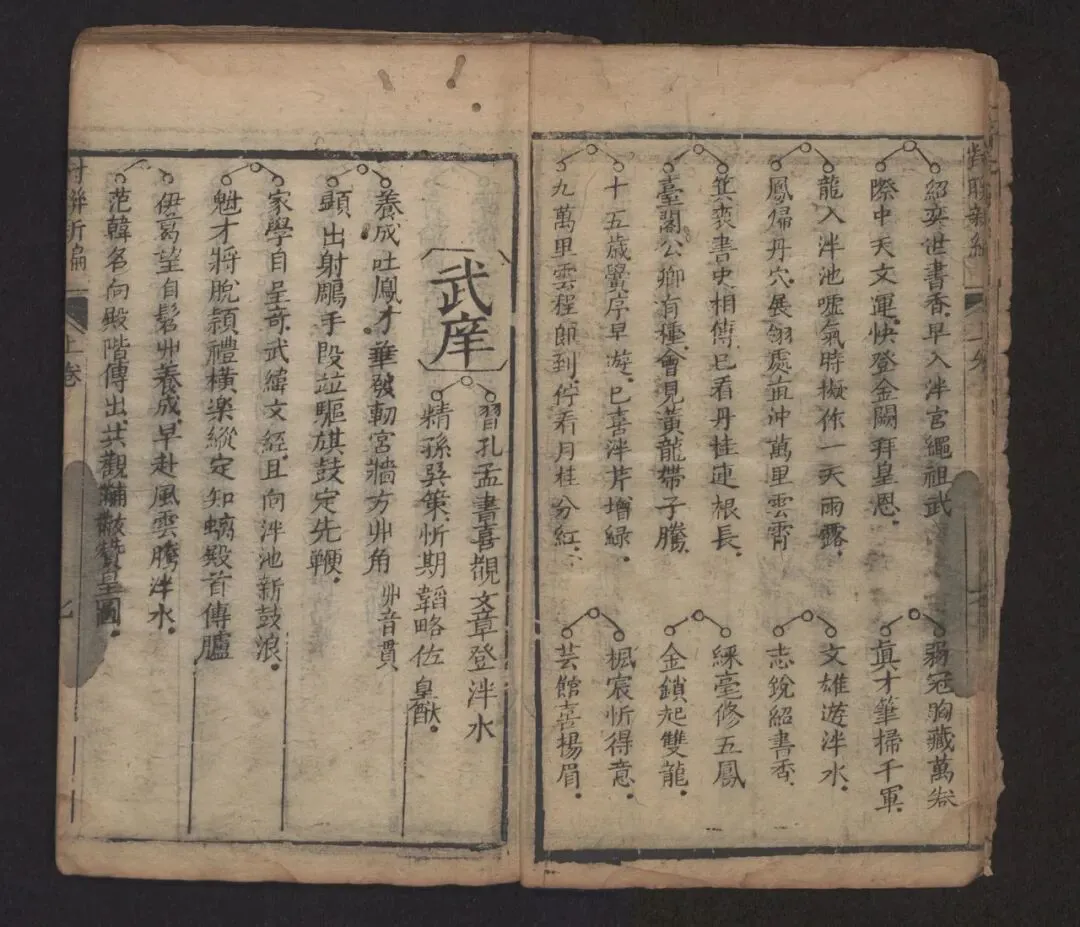 紹奕世書香、早入泮宮繩祖武
際中天文運、快登金闕拜皇恩。
龍入泮池噓氣時擬作一天雨露。
鳳歸丹穴、展翎處直沖萬里雲霄
箕裘書史、相傳、已看丹桂連根長、
臺閣公卿有種、會見黃龍帶子騰、
十五歲黌序早遊、已喜泮芹增綠、
九萬里雲程即到、佇看月桂分紅、
弱冠胸藏萬卷
真才筆掃千軍。
文雄遊泮水。
志銳紹書香。
綵毫修五鳳
金鎖起雙龍。
楓宸忻得意。
芸館喜揚眉。
武庠
習孔孟書喜覩文章登泮水
精孫吳策、忻期韜略佐 皇猷。
養成吐鳳才華、敏軔宮牆方丱角 丱音貫
顯出射鵰手段並驅旗鼓定先鞭。
家學自呈奇、武緯文經、且向泮池新鼓浪。
魁才將脫穎禮橫樂縱定知螭殿首傳臚
伊葛望自髫丱養成、早赴風雲騰泮水。
范韓名向殿階傳出、共觀黼黻贊皇圖。
對聯新編
上卷
七